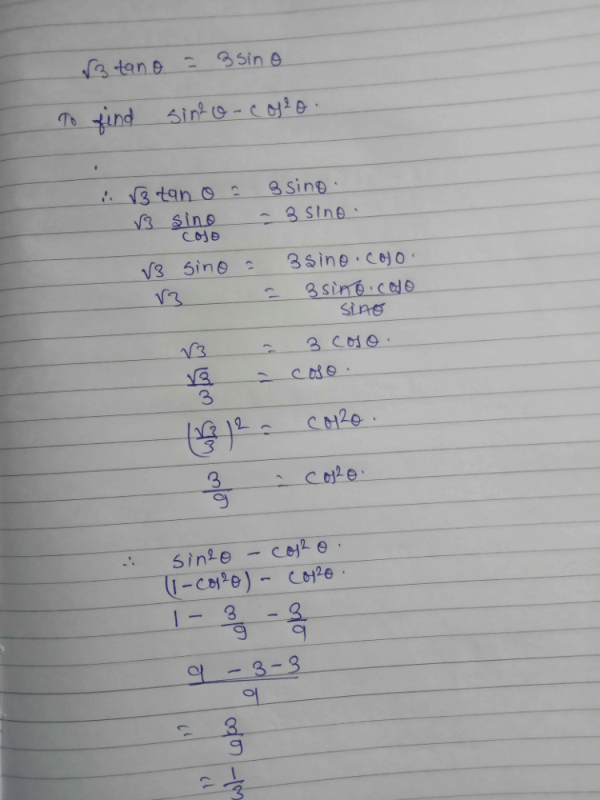 √3 tanθ = 3 sinθ
To find sin²θ - cos²θ.
∴ √3 tan θ = 3 sinθ.
√3 sinθ/cosθ = 3 sinθ.
√3 sinθ = 3 sinθ · cosθ.
√3 = 3 sinθ · cosθ / sinθ
√3 = 3 cosθ.
√3/3 = cosθ.
(√3/3)² = cos²θ.
3/9 = cos²θ.
∴ sin²θ - cos²θ.
(1 - cos²θ) - cos²θ.
1 - 3/9 - 3/9
9 - 3 - 3 / 9
= 3/9
= 1/3